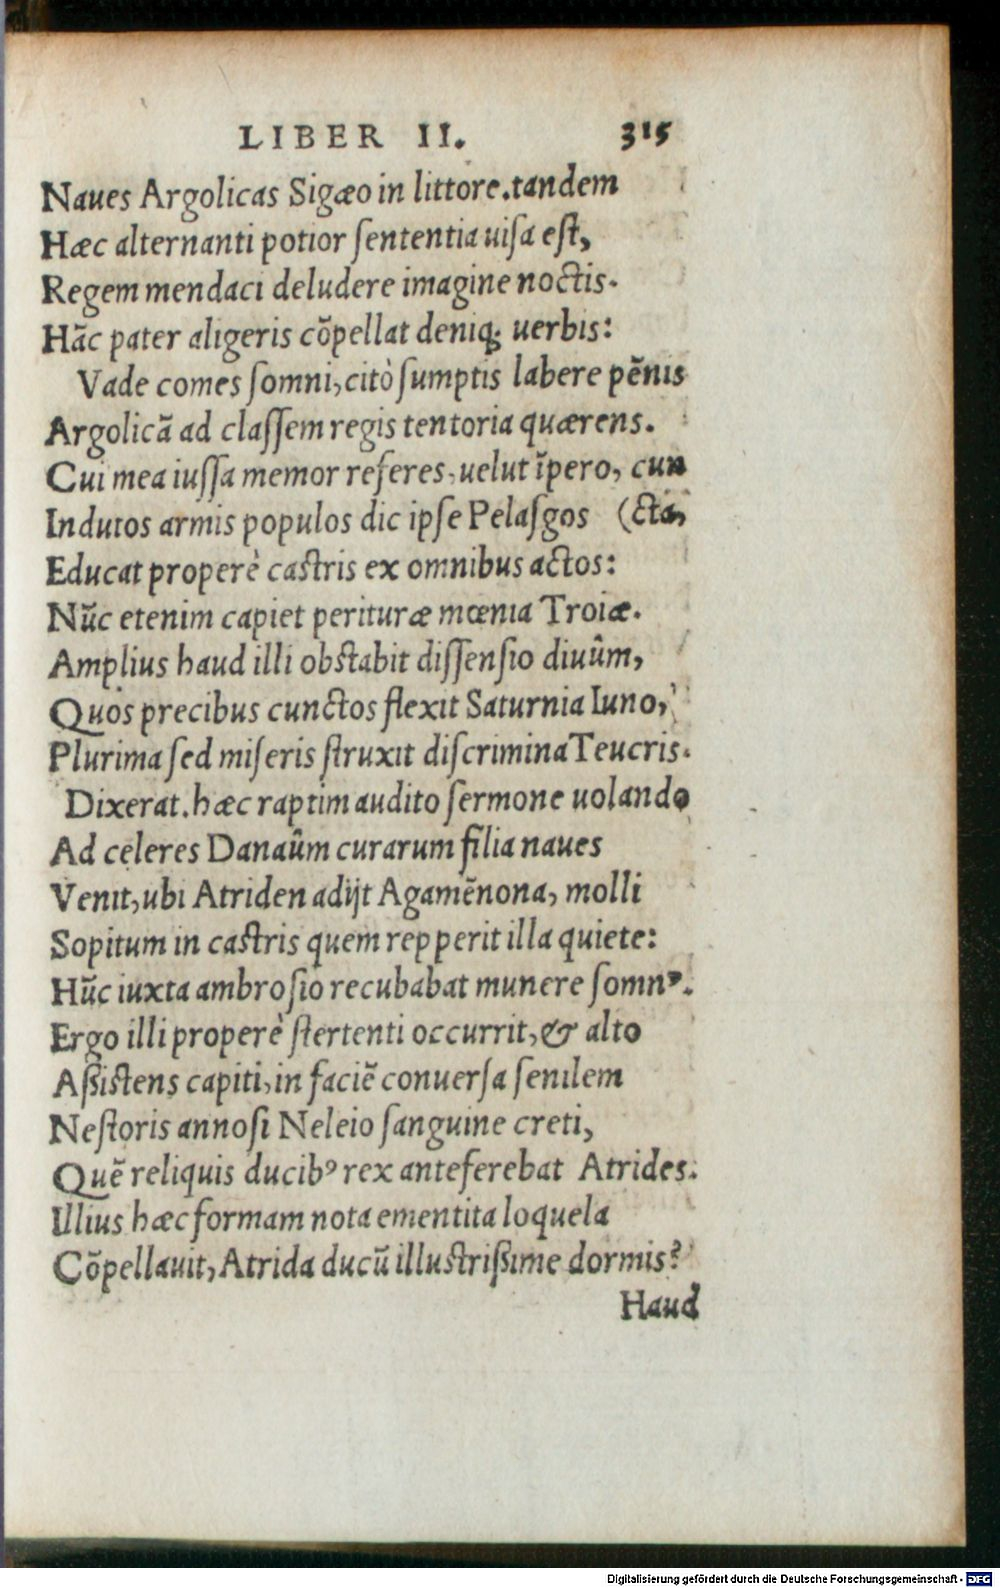 LIBER II. 315
Naues Argolicas Sigæo in littore.tandem
Hæc alternanti potior ſententia uiſa eſt,
Regem mendaci deludere imagine noctis.
Hãc pater aligeris cõpellat deniq; uerbis:
Vade comes ſomni, citò ſumptis labere pẽnis
Argolicã ad claſſem regis tentoria quærens.
Cui mea iuſſa memor referes, uelut ĩpero, cun
Indutos armis populos dic ipſe Pelaſgos (cta,
Educat properè caſtris ex omnibus actos:
Nũc etenim capiet perituræ mœnia Troiæ.
Amplius haud illi obſtabit diſſenſio diuûm,
Quos precibus cunctos flexit Saturnia Iuno,
Plurima ſed miſeris ſtruxit diſcrimina Teucris.
Dixerat. hæc raptim audito ſermone uolando
Ad celeres Danaûm curarum filia naues
Venit, ubi Atriden adijt Agamẽnona, molli
Sopitum in caſtris quem repperit illa quiete:
Hũc iuxta ambroſio recubabat munere ſomnꝰ.
Ergo illi properè ſtertenti occurrit, & alto
Aßiſtens capiti, in faciẽ conuerſa ſenilem
Neſtoris annoſi Neleio ſanguine creti,
Quẽ reliquis ducibꝰ rex anteferebat Atrides.
Illius hæc formam nota ementita loquela
Cõpellauit, Atrida ducũ illuſtrißime dormis?
Haud
Digitalisierung gefördert durch die Deutsche Forschungsgemeinschaft - DFG